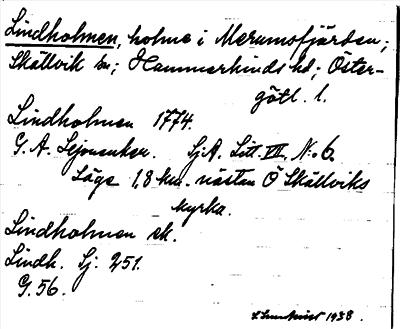 Lindholmen, holme i Merumsfjärden;
Skällvik sn; Hammarkinds hd; Öster-
götl. l.
Lindholmen 1774.
G. A. Lejonanker. SjA. Litt. VII, N:o 6.
Läge 1,8 km. nästan Ö Skällviks
kyrka.
Lindholmen ek.
Lindh. Sj: 251.
G. 56.
1938.